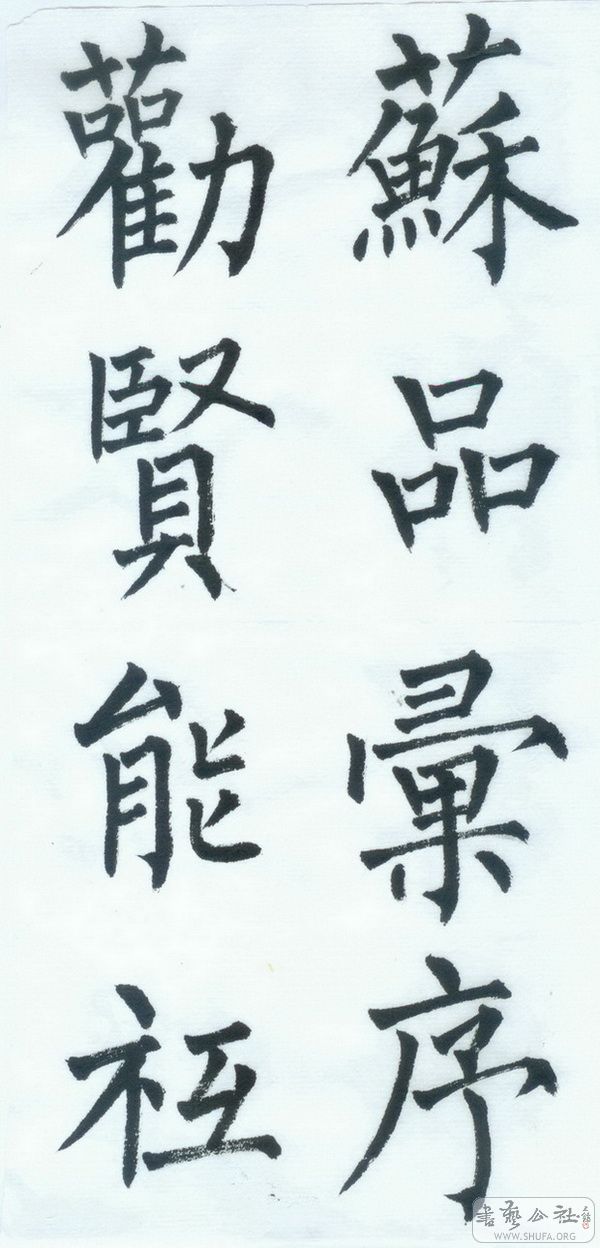 蘇品彙序
勸賢能祗
書藝公社
WWW.SHUFA.ORG